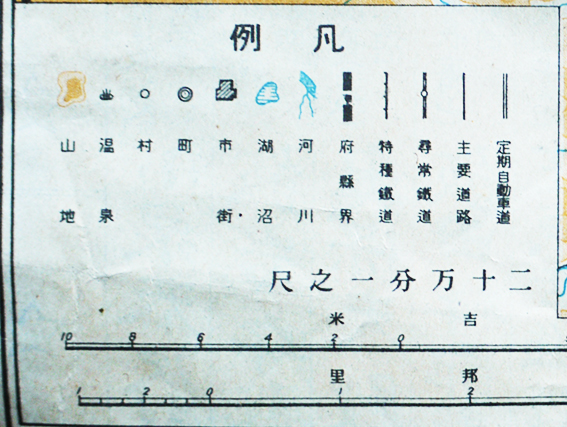 凡例
定期自動車道
主要道路
尋常鐵道
特種鐵道
府縣界
河川
湖沼
市・街
町
村
温泉
山地
二十万分一之尺
吉米
10 8 6 4 2 0
邦里
1 2 0 1 2